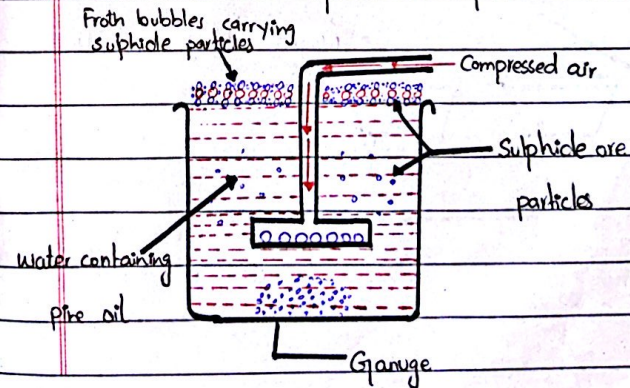 Froth bubbles carrying
sulphide particles
Compressed air
Sulphide ore
particles
water containing
pine oil
Ganuge